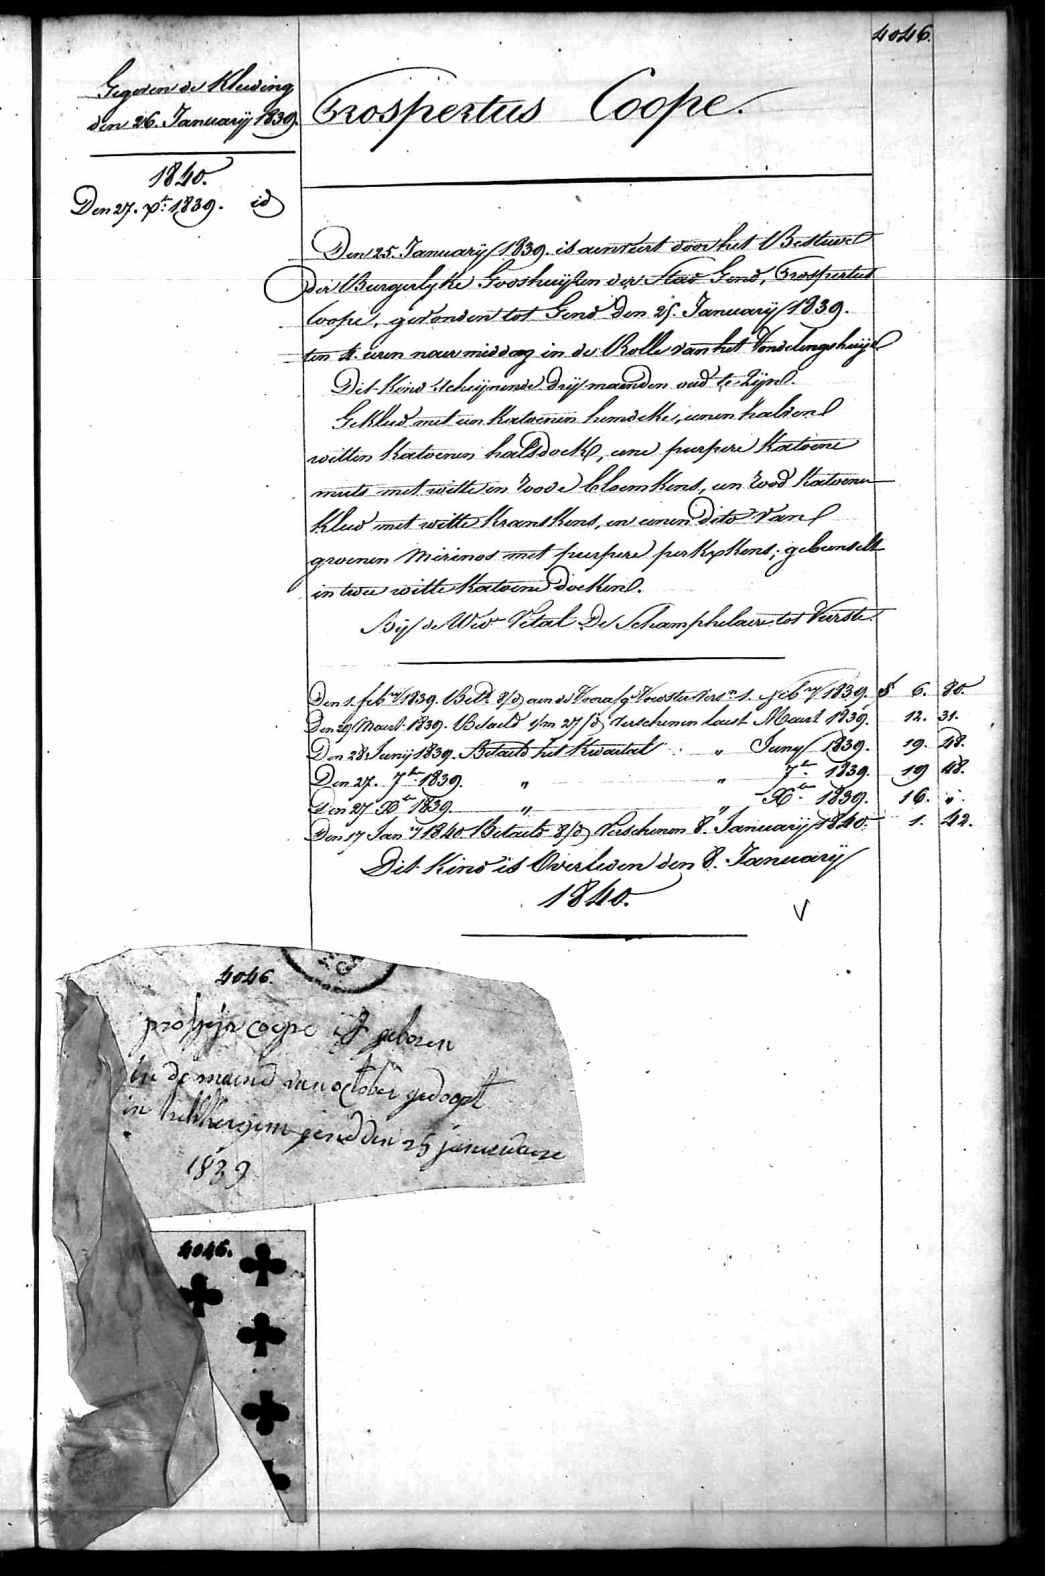 4046.
Gegeven de Kleeding
den 26. Januarij 1839.
1840.
Den 27. Xbr 1839. id
Prospertus Coope.
Den 25. Januarij 1839. is aenveert door het Bestuur
der Burgerlyke Godshuijzen der Stad Gend, Prospertus
Coope, gevonden tot Gend den 25. Januarij 1839.
ten 4. uren naer middag in de Rolle van het Vondelingshuijs
Dit Kind schijnende drij maenden oud te zijn.
Gekleed met een Katoenen hemdeke, eenen halven
witten Katoenen halsdoek, eene peerpere Katoene
muts met witte en roode bloemkens, een rood Katoenen
Kleed met witte Kranskens, en eenen dito van
groenen mirinos met peerpere perkxkens; gebunselt
in twee witte Katoene doeken.
Bij de Wed. Vital De Schamphelaere tot Veurste.
Den 1. feb.ry 1839. Bet. 8/d aen de Voorz. Voedster vers.n 1. feb.ry 1839. f 6. 80.
Den 29 Maert 1839. Betaeld 1/m 27/d verschenen laest Maert 1839. 12. 31.
Den 28 Junij 1839. Betaeld het Kwartael " Juny 1839. 19. 48.
Den 27. 7br 1839. " " 7br 1839. 19 48.
Den 27 Xbr 1839. " " Xbr 1839. 16. "
Den 17 Jan.ry 1840. Betaeld 8/d verschenen 8. Januarij 1840. 1. 42.
Dit Kind is Overleden den 8. Januarij
1840.
4046.
coope is geboren
in de maend van october gedoopt
in gend den 25 januware
1839
4046.